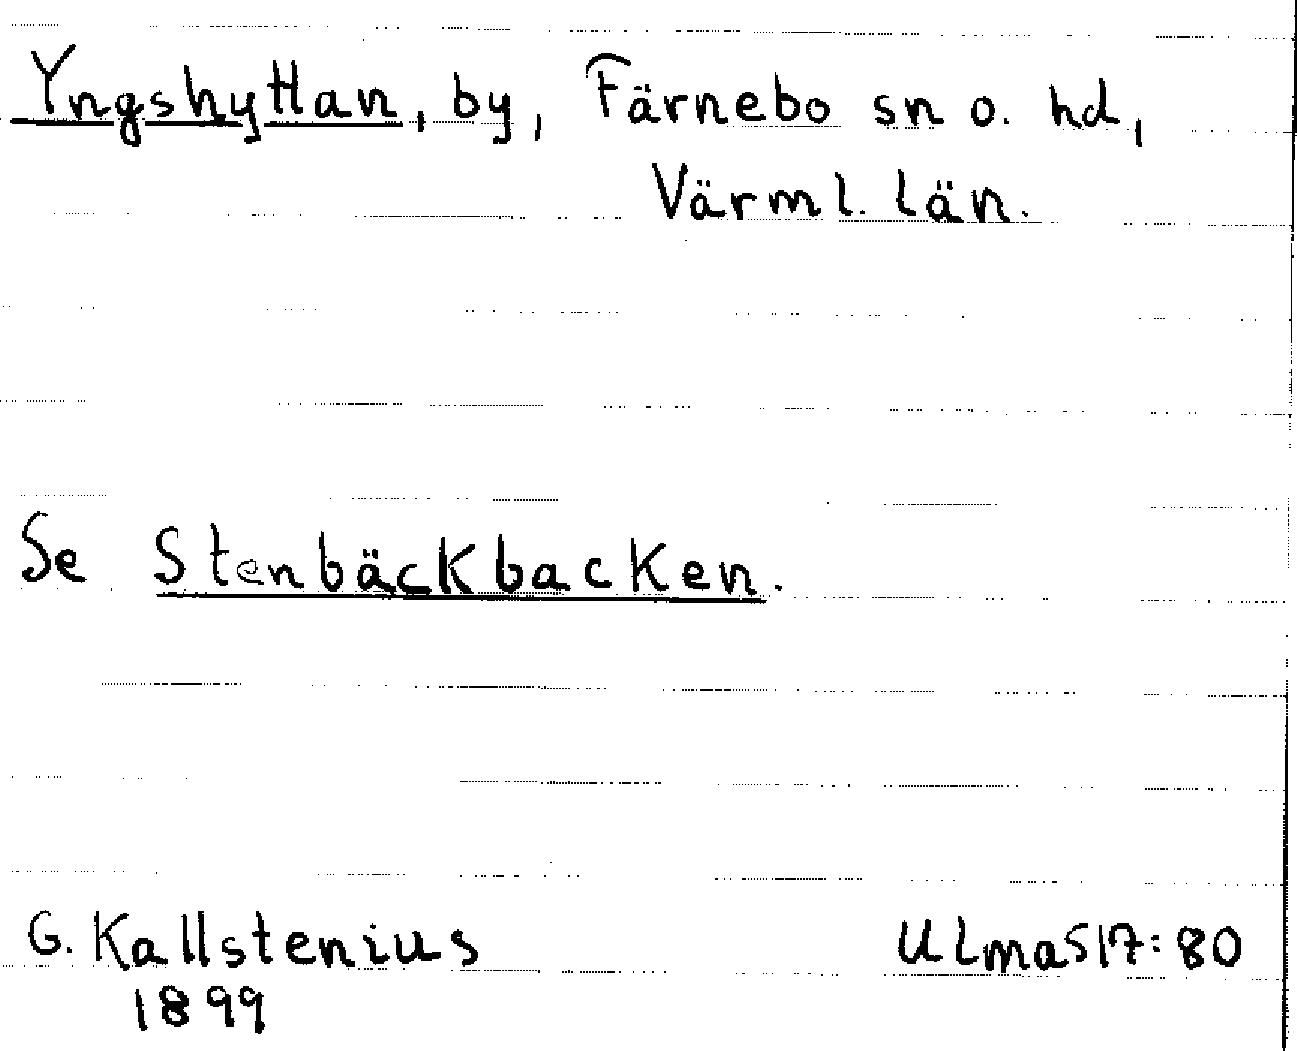 Yngshyttan, by, Färnebo sn o. hd,
Värml. län.
Se Stenbäckbacken.
G. Kallstenius ULma517:80
1899